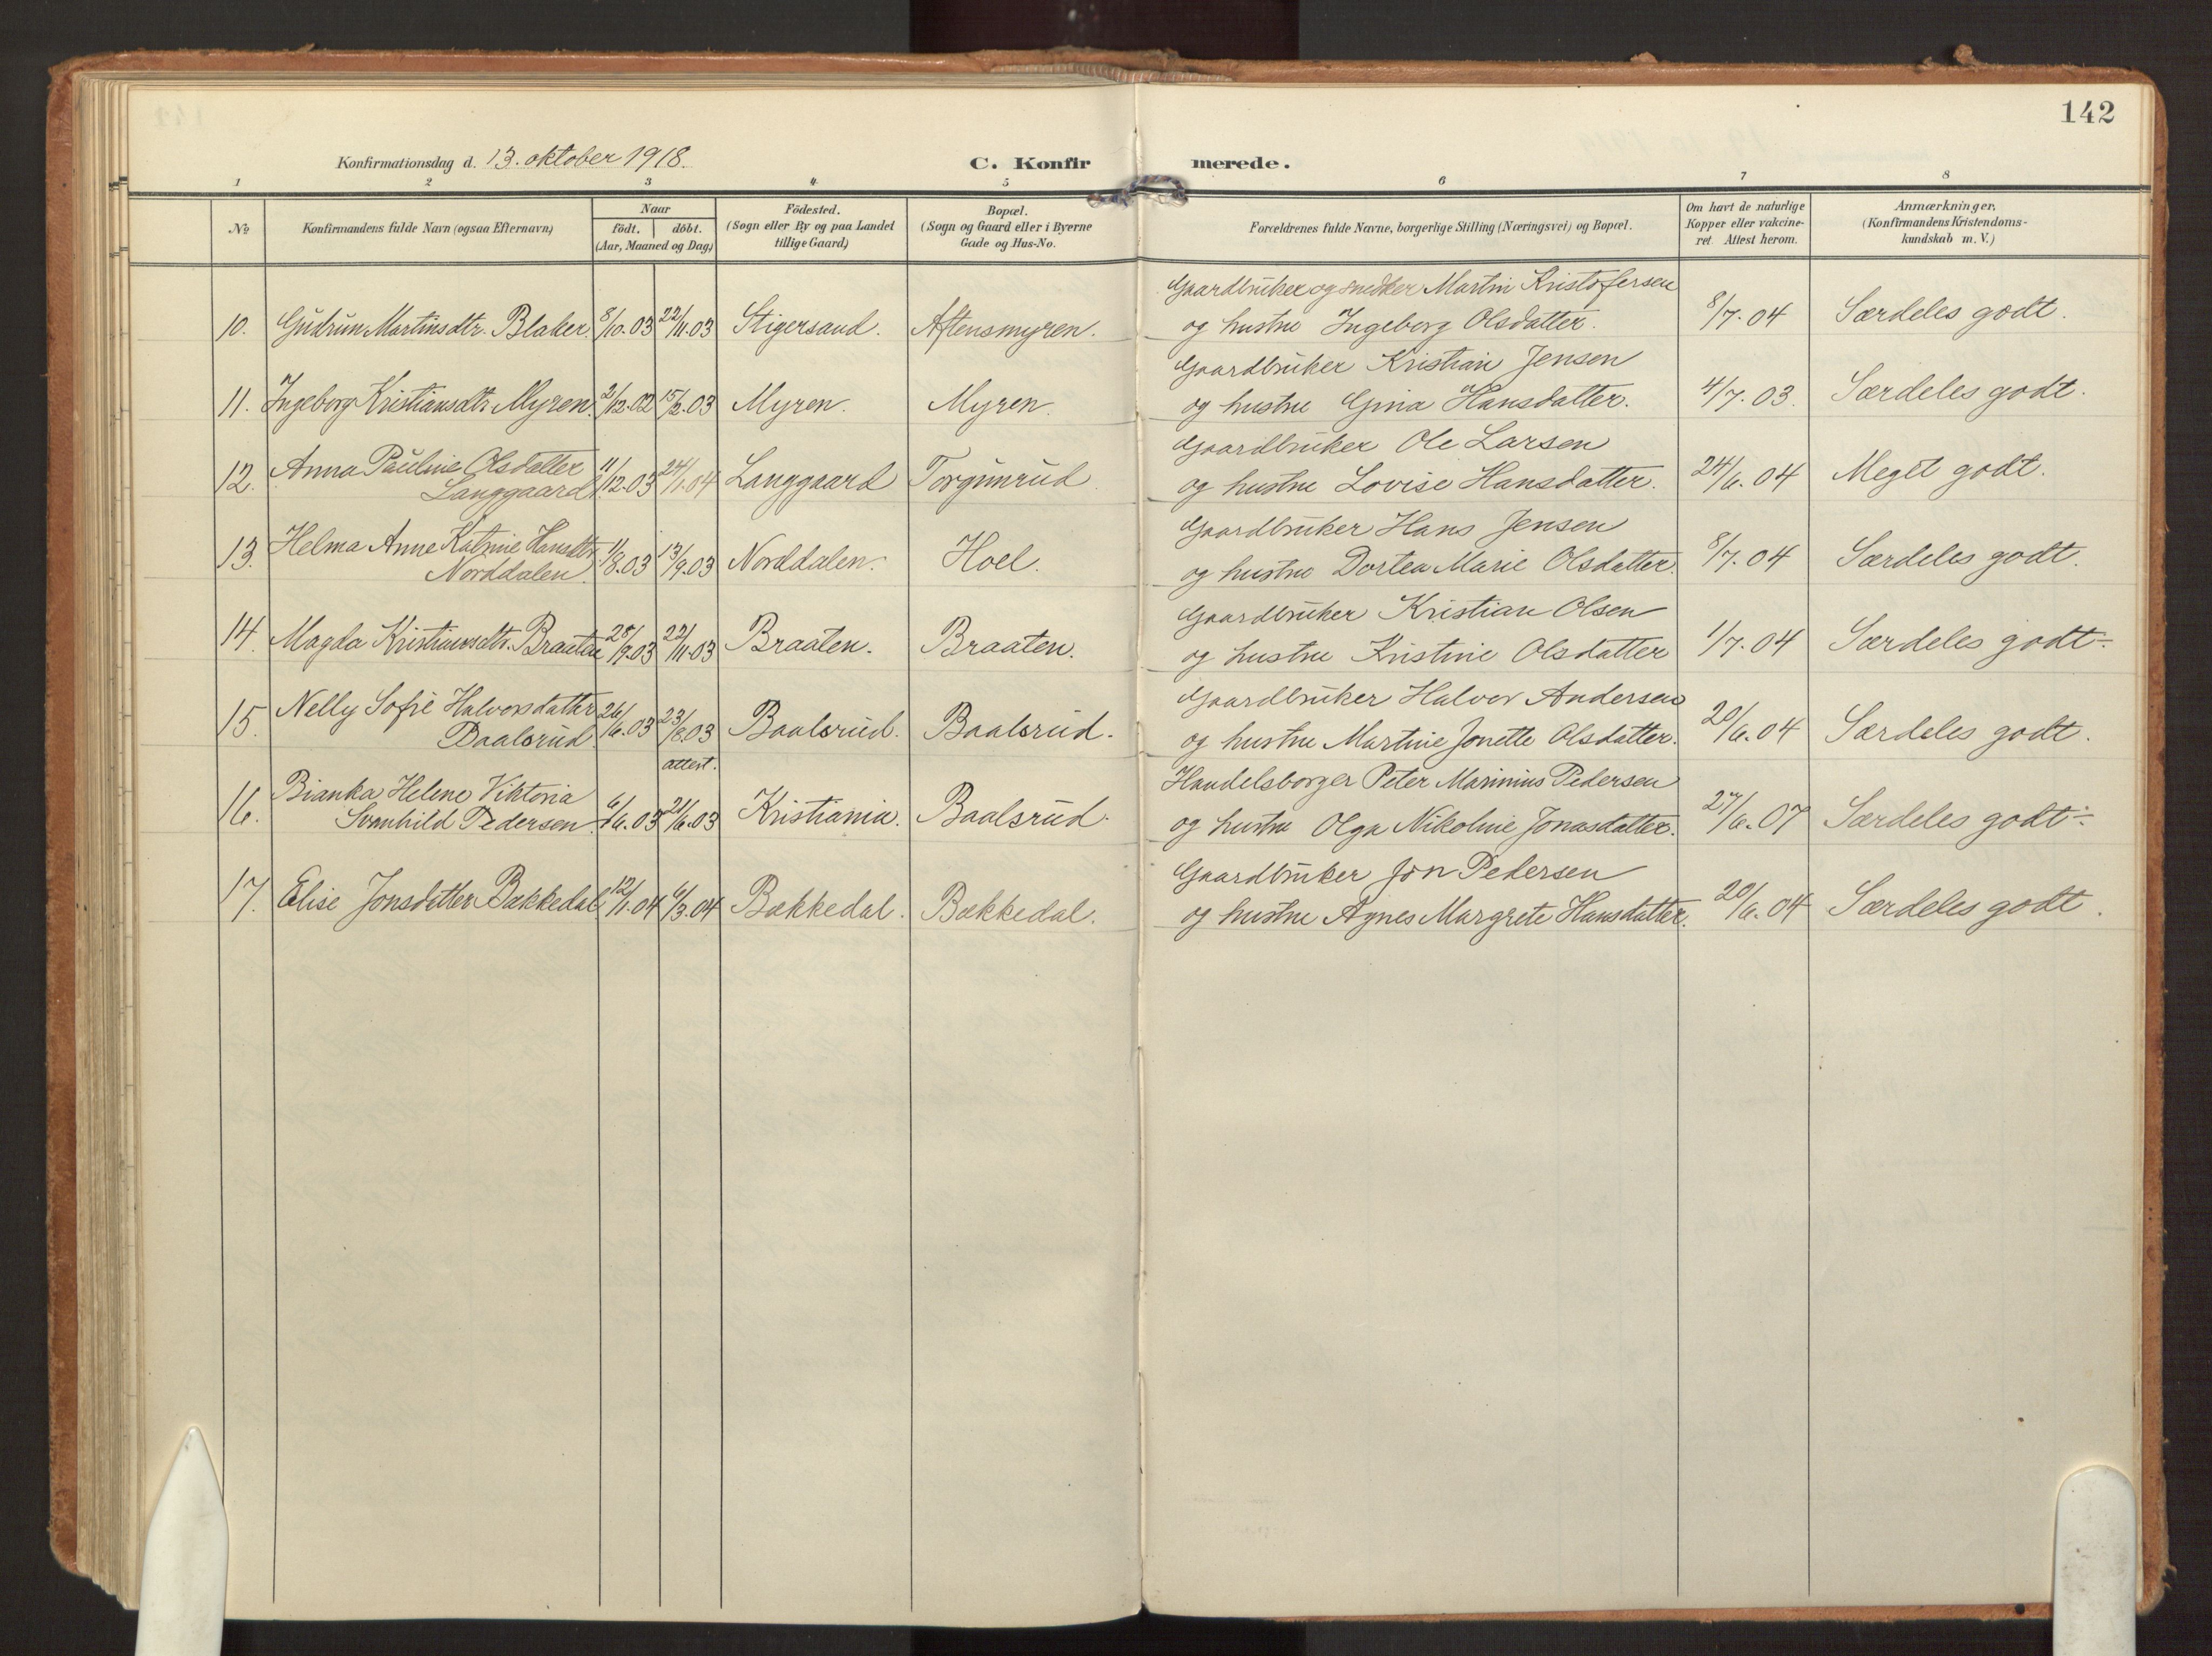 142
Konfirmationsdag d. 13. oktober 1918.
C. Konfirmerede.
1 2 3 4 5 6 7 8
No
Konfirmandens fulde Navn (ogsaa Efternavn)
Naar
födt. döbt.
(Aar, Maaned og Dag)
Födested.
(Sogn eller By og paa Landet
tillige Gaard)
Bopæl.
(Sogn og Gaard eller i Byerne
Gade og Hus-No.
Forældrenes fulde Navne, borgerlige Stilling (Næringsvei) og Bopæl.
Om havt de naturlige
Kopper eller vakcine-
ret Attest herom.
Anmærkninger.
(Konfirmandens Kristendoms-
kundskab m. V.)
Gaardbruker og snedker Martin Kristofersen
10. Gudrun Martinsdtr. Blaker. 8/10.03 22/11.03 Stigersand. Aftensmyren. og hustru Ingeborg Olsdatter. 8/7.04 Særdeles godt.
Gaardbruker Kristian Jensen
11. Ingeborg Kristiansdtr. Myren. 2/12.02 15/2.03 Myren. Myren. og hustru Gina Hansdatter. 4/7.03. Særdeles godt.
Anna Pauline Olsdatter Gaardbruker Ole Larsen
12. Langgaard 11/12.03 24/1.04 Langgaard Torgunrud. og hustru Lovise Hansdatter. 24/6.04 Meget godt.
Helma Anne Katrine Hansdtr. Gaardbruker Hans Jensen
13. Norddalen. 11/8.03 13/9.03 Norddalen. Hoel. og hustru Dortea Marie Olsdatter. 8/7.04 Særdeles godt.
Gaardbruker Kristian Olsen
14. Magda Kristiansdtr. Braaten 28/9.03 22/11.03 Braaten. Braaten. og hustru Kristine Olsdatter 1/7.04 Særdeles godt ÷
Nelly Sofie Halvorsdatter Gaardbruker Halvor Andersen
15. Baalsrud 26/6.03 23/8.03 Baalsrud. Baalsrud. og hustru Martine Jonette Olsdatter. 20/6.04 Særdeles godt.
attest.
Bianka Helene Viktoria Handelsborger Peter Marinius Pedersen
16. Svanhild Pedersen 6/6.03 21/6.03 Kristiania. Baalsrud. og hustru Olga Nikoline Jonasdatter. 27/6.07 Særdeles godt ÷
Gaardbruker Jon Pedersen
17. Elise Jonsdatter Bækkedal 12/1.04 6/3.04 Bækkedal. Bækkedal. og hustru Agnes Margrete Hansdatter. 20/6.04 Særdeles godt.